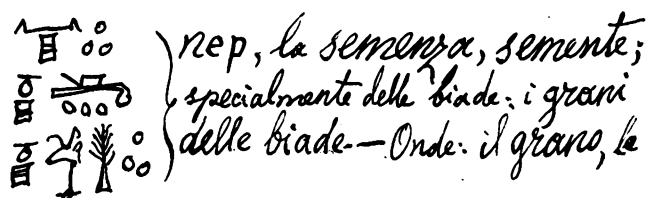 nep, la semenza, semente;
specialmente delle biade: i grani
delle biade.— Onde: il grano, le